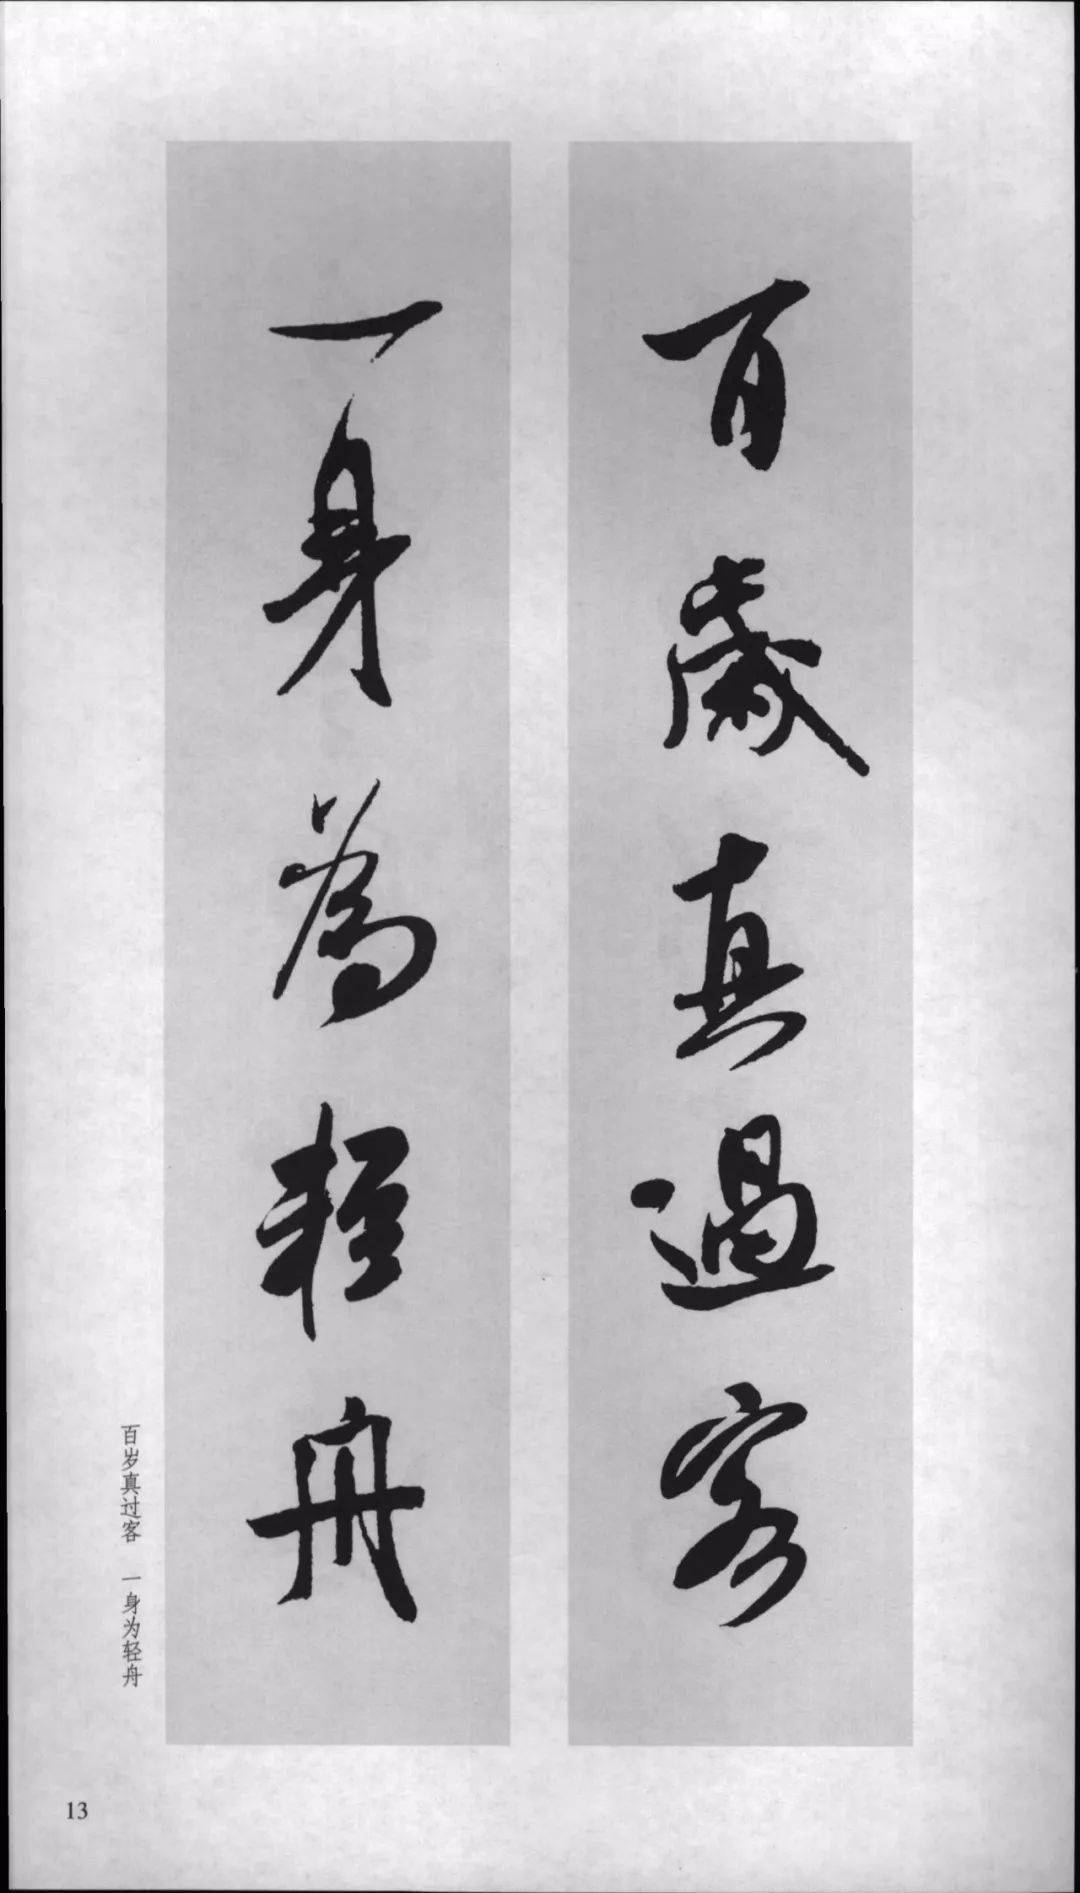 百歲真過客
一身為輕舟
百岁真过客 一身为轻舟
13